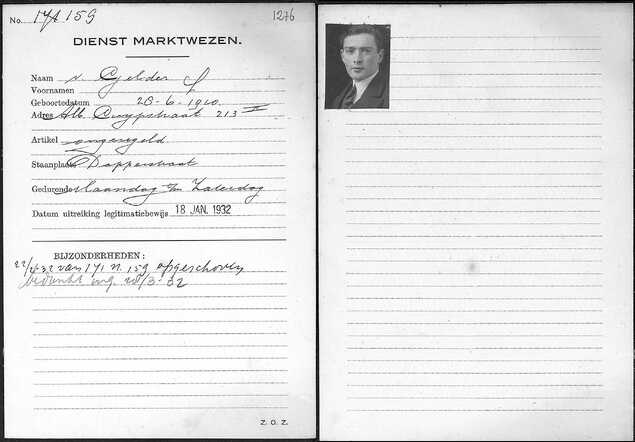 No. 171 159 1276
DIENST MARKTWEZEN.
Naam v. Gelder
Voornamen
Geboortedatum 28-6-1910
Adres Alb. Cuypstraat 213 II
Artikel ongeregeld
Staanplaats Dapperstraat
Gedurende Maandag t/m Zaterdag
Datum uitreiking legitimatiebewijs 18 JAN. 1932
BIJZONDERHEDEN:
van 171 n. 159 opgeschoven
ing. 3-32
Z. O. Z.